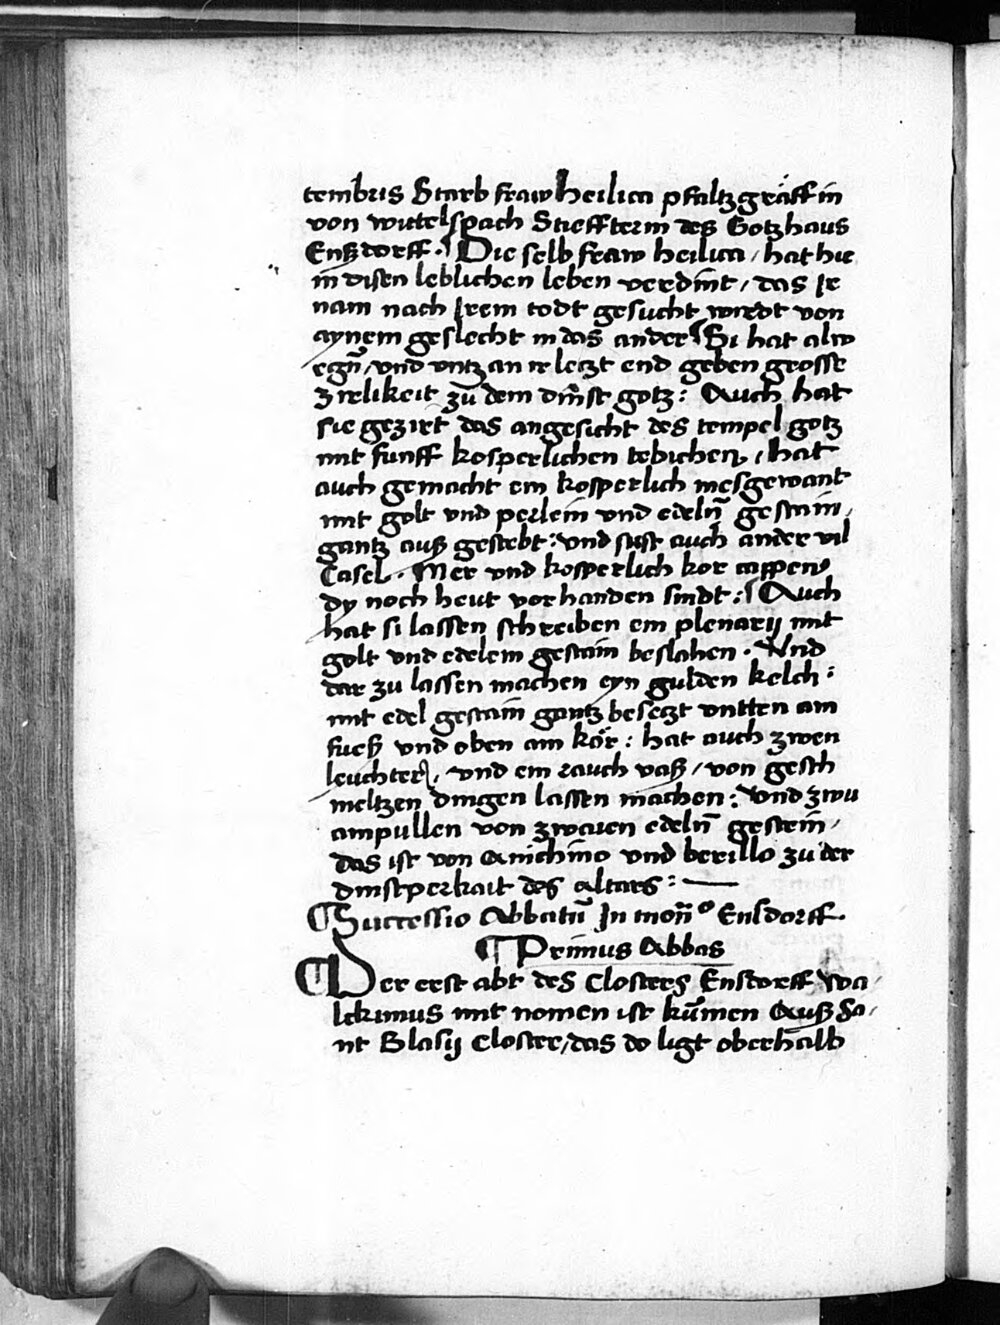 tembris Starb fraw heilica pfaltzgräffin
von witelspach Stiefftterin des Gotzhaus
Enßdorff · Die selb fraw heilica / hat hie
in disen leblichen leben verdint / das Ir
nam nach Irem todt gesucht wirdt von
aynem geslecht in das ander Si hat alw
egn̄ / vnd vntz an ir letzt end geben grosse
zirlikeit zu dem dinst gotz : Auch hat
sie gezirt das angesicht des tempel gotz
mit funff kosperlichen tebichen / hat
auch gemacht ein kosperlich mesgewant
mit golt vnd perlein vnd edeln̄ gestain /
gantz auß gestebt : vnd sust auch ander vil
Casel · Mer vnd kosperlich kor cappen
dy noch heut vorhanden sindt : Auch
hat si lassen schreiben ein plenarij mit
golt vnd edelem gestain beslahen · Vnd
dar zu lassen machen eyn gulden kelch :
mit edel gestain gantz besetzt vntten am
fueß vnd oben am kör : hat auch zwen
leuchter , vnd ein rauch vaß / von gesch
meltzen dingen lassen machen : Vnd zwu
ampullen von zwaien edeln̄ gestein /
das ist von Anichino vnd berillo zu der
dinstperkait des altars : —
¶ Successio Abbatū In mon̄o Ensdorff
¶ Primus Abbas
¶ Der erst abt des Closters Ensdorff Wa
lckimus mit nomen ist kum̄en Auß Sa
nt Blasij Closter / das do ligt oberhalb